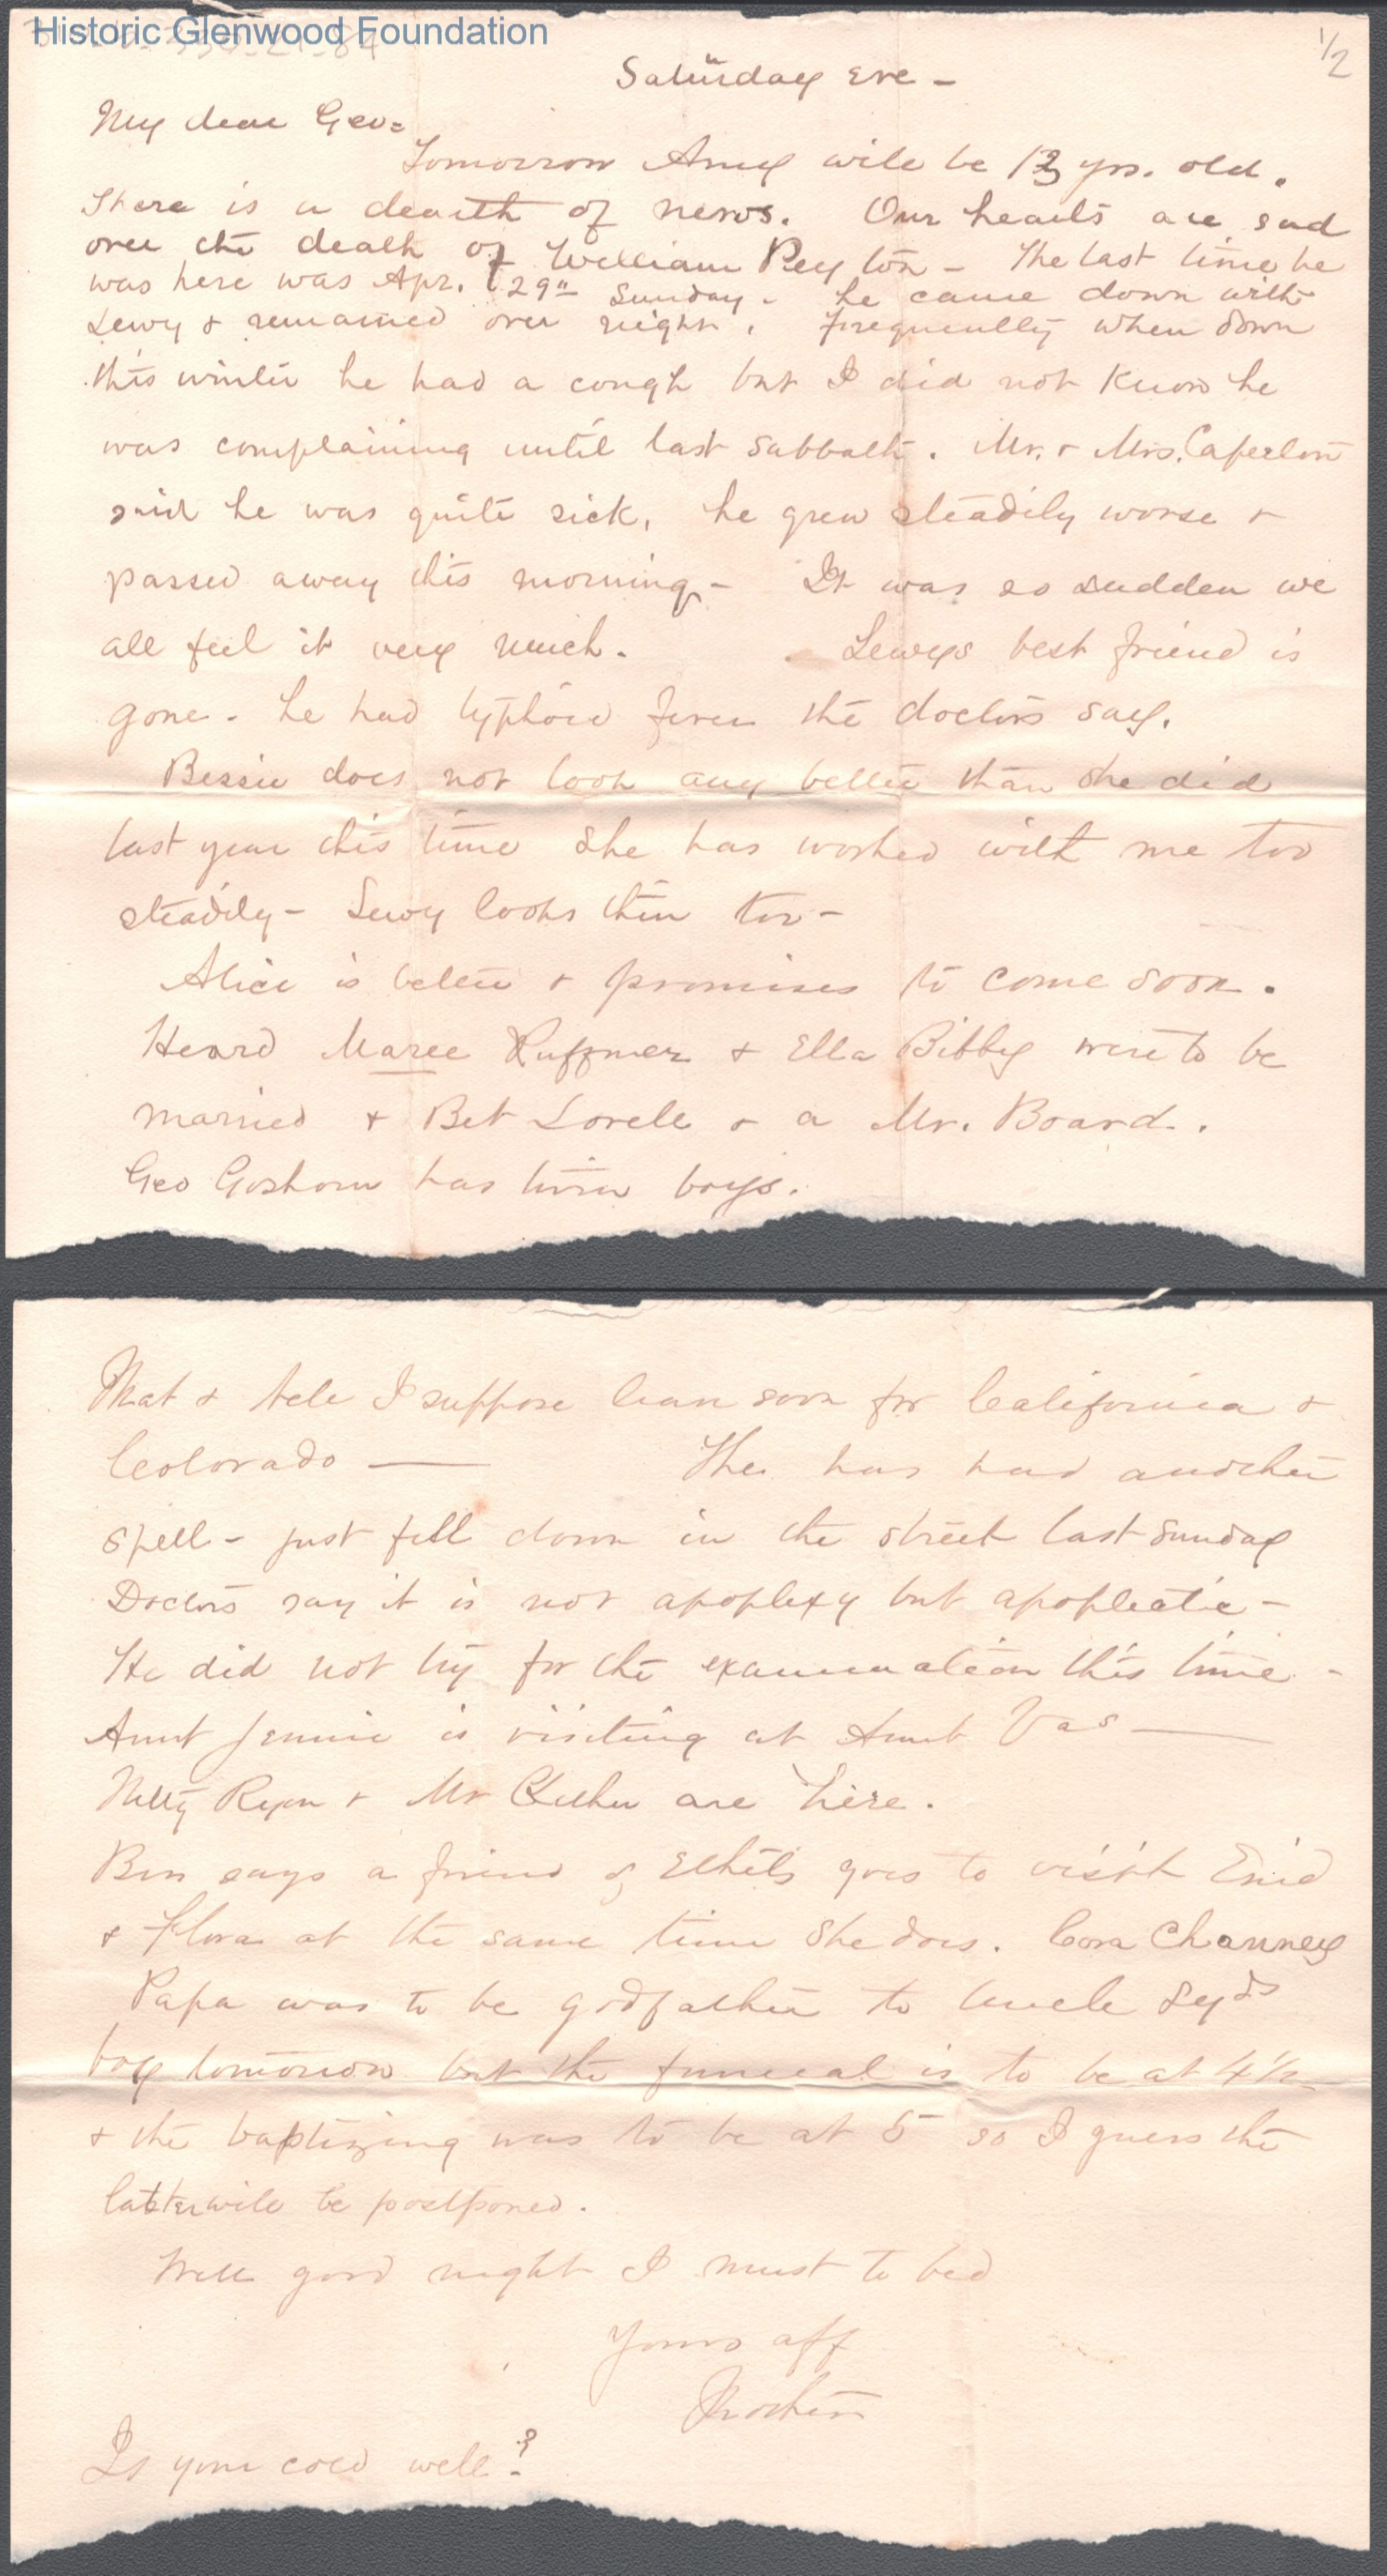 Historic Glenwood Foundation
1/2
Saturday Eve -
My dear Geo=
Tomorrow Amy will be 13 yrs. old.
There is a dearth of news. Our hearts are sad
over the death of William Peyton - The last time he
was here was Apr. 29" Sunday - he came down with
Lewy & remained over night. Frequently when down
this winter he had a cough but I did not know he
was complaining until last Sabbath. Mr. & Mrs. Caperton
said he was quite sick, he grew steadily worse &
passed away this morning - It was so sudden we
all feel it very much. Lewys best friend is
gone - he had typhoid fever the doctors say.
Bessie does not look any better than she did
last year this time She has worked with me too
steadily - Lewy looks thin too -
Alice is better & promises to come soon.
Heard Maree Ruffner & Ella Bibby were to be
married & Bet Lovell & a Mr. Board.
Geo Goshorn has twin boys.
Mat & I suppose leave soon for California &
Colorado — The has had another
spell - just fell down in the street last Sunday
Doctors say it is not apoplexy but apoplectic -
He did not try for the examination this time -
Aunt Jennie is visiting at Aunt Vas —
Netty Ryon & Mr are here.
Ben says a friend of Ethels goes to visit Enid
& Flora at the same time she does. Cora Channey
Papa was to be godfather to Uncle Syds
boy tomorrow but the funeral is to be at 4 1/2
& the baptizing was to be at 5 so I guess the
latter will be postponed.
Well good night I must to bed
Yours aff
Mother
Is your cold well?